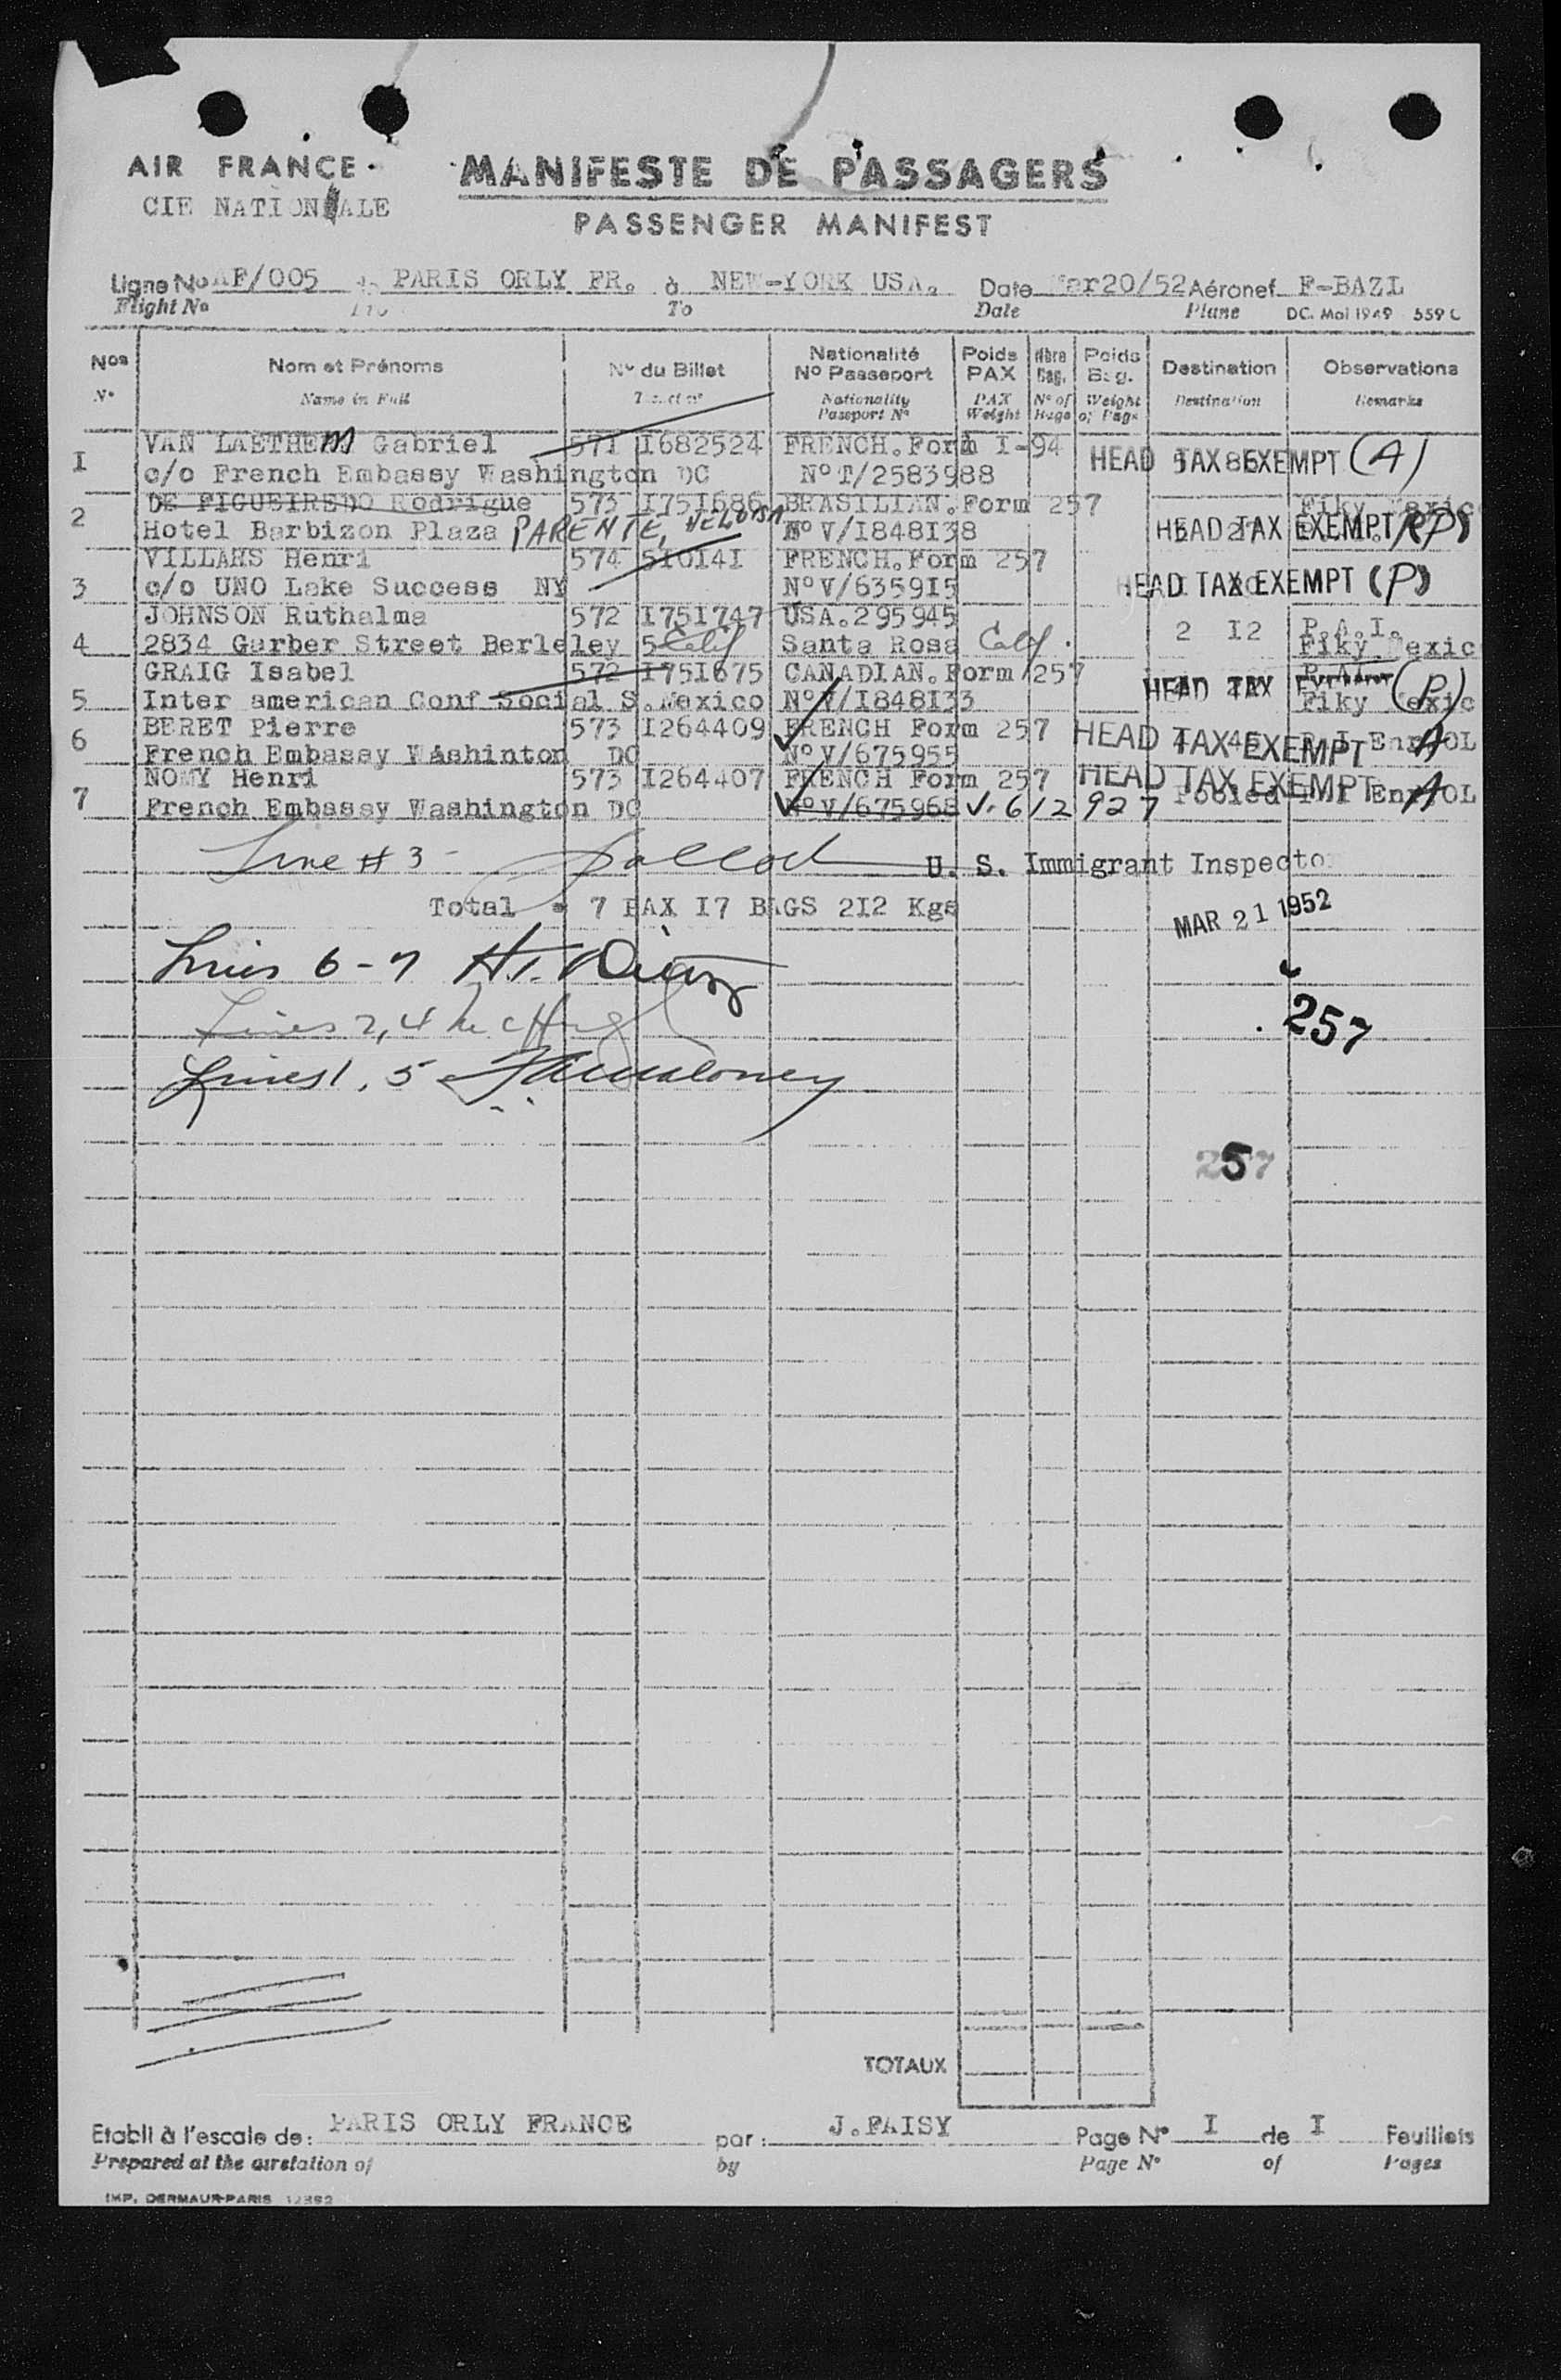 AIR FRANCE
CIE NATIONALE
MANIFESTE DE PASSAGERS
PASSENGER MANIFEST
Ligne No AF/005 PARIS ORLY FR. à NEW-YORK USA. Date Mar20/52 Aéronef F-BAZL
Flight No To Date Plane DC. Mai 1949 559 C
Nos Nom et Prénoms No du Billet Nationalité No Passeport Poids PAX Nbre Bag. Poids Bag. Destination Observations
No Name in Full Ticket no Nationality Passport No PAX Weight No of Bags Weight of Bags Destination Remarks
1 VAN LAETHEM Gabriel 571 1682524 FRENCH.Form I-94 HEAD TAX EXEMPT (A)
c/o French Embassy Washington DC No T/2583988
2 DE FIGUEIREDO Rodrigue 573 1751686 BRASILIAN.Form 257 Fiky Mexic
Hotel Barbizon Plaza PARENTE, HELOISA No V/1848138 HEAD TAX EXEMPT
VILLARS Henri 574 510141 FRENCH.Form 257
3 c/o UNO Lake Success NY No V/635915 HEAD TAX EXEMPT (P)
JOHNSON Ruthalma 572 1751747 USA.295945 2 12 P.A.I.
4 2834 Garber Street Berleley 5 Calif Santa Rosa Calif. Fiky Mexic
GRAIG Isabel 572 1751675 CANADIAN.Form 257 HEAD TAX (P)
5 Inter american Conf Social S.Mexico No V/1848133 Fiky Mexic
6 BERET Pierre 573 1264409 FRENCH Form 257 HEAD TAX EXEMPT A
French Embassy Washinton DC No V/675955
NOMY Henri 573 1264407 FRENCH Form 257 HEAD TAX EXEMPT A
7 French Embassy Washington DC No V/675968 V-612927 Pooled
Line #3 - U. S. Immigrant Inspector
Total = 7 PAX 17 BAGS 212 Kgs
MAR 21 1952
Lines 6-7
257
Lines 2,4
Lines 1, 5
257
TOTAUX
Etabli à l'escale de: PARIS ORLY FRANCE par: J.FAISY Page No I de I Feuillets
Prepared at the airstation of by Page No of Pages
IMP. DERMAUR-PARIS